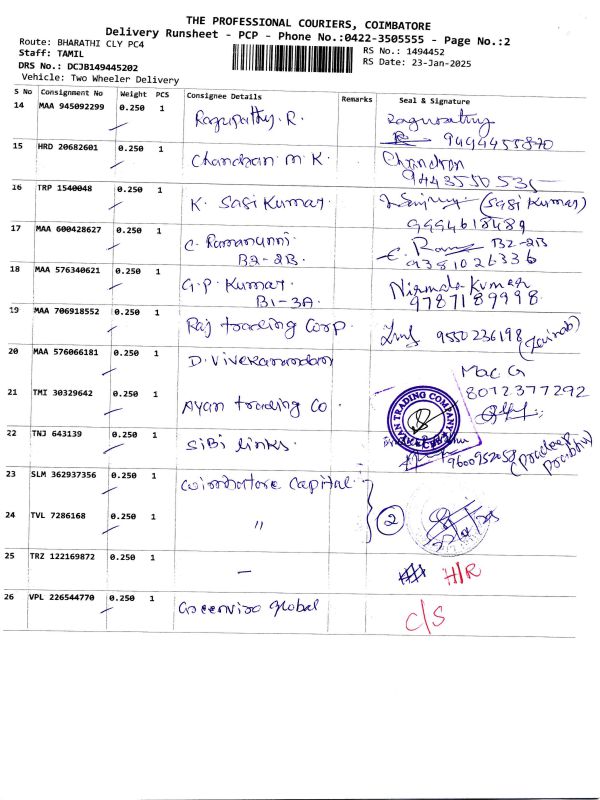 THE PROFESSIONAL COURIERS, COIMBATORE
Delivery Runsheet - PCP - Phone No.:0422-3505555 - Page No.:2
Route: BHARATHI CLY PC4
RS No.: 1494452
Staff: TAMIL
RS Date: 23-Jan-2025
DRS No.: DCJB149445202
Vehicle: Two Wheeler Delivery
S No Consignment No Weight PCS Consignee Details Remarks Seal & Signature
14 MAA 945092299 0.250 1 Ragupathy. R. Ragupathy
9494455870
15 HRD 20682601 0.250 1 Chandran M.K. Chandran
9443550535
16 TRP 1540048 0.250 1 K. Sasi Kumar. (Sasi Kumar)
9994618489
17 MAA 600428627 0.250 1 C. Ramanunni. B2-2B
B2-2B. 9381026336
18 MAA 576340621 0.250 1 G.P. Kumar. Nirmala Kumar
B1-3A. 9787189998.
19 MAA 706918552 0.250 1 Raj trading Corp. 9550236198 (Zainab)
20 MAA 576066181 0.250 1 D. Vivekanandan Mac G
8072377292
21 TMI 30329642 0.250 1 Ayan trading Co
22 TNJ 643139 0.250 1 SiBi links. 9600952058 (Pradeep Prabhu)
23 SLM 362937356 0.250 1 Coimbatore Capital.
24 TVL 7286168 0.250 1 " 2
25 TRZ 122169872 0.250 1 - H/R
26 VPL 226544770 0.250 1 Greenviro Global C/S